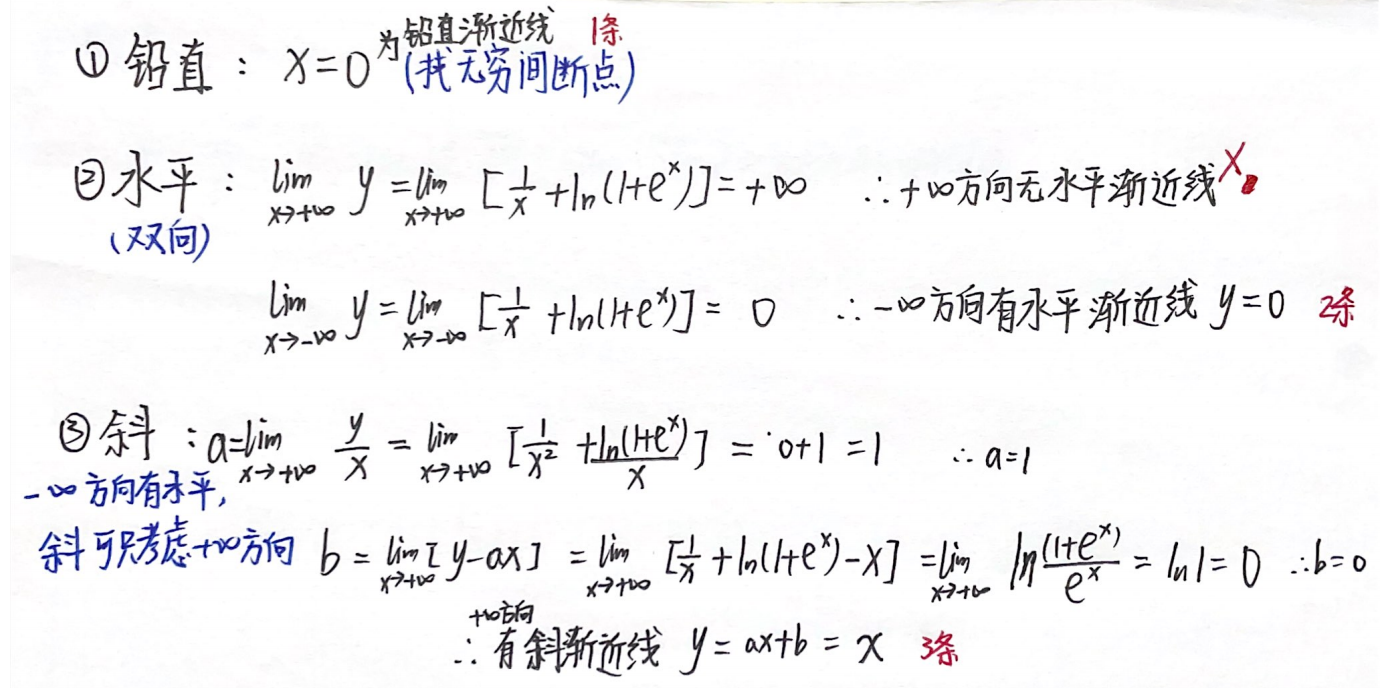 ① 铅直：x=0 为铅直渐近线 1条
(找无穷间断点)
② 水平：lim x→+∞ y = lim x→+∞ [1/x + ln(1+e^x)] = +∞ ∴+∞方向无水平渐近线 X
(双向)
lim x→-∞ y = lim x→-∞ [1/x + ln(1+e^x)] = 0 ∴-∞方向有水平渐近线 y=0 2条
③ 斜：a=lim x→+∞ y/x = lim x→+∞ [1/x² + ln(1+e^x)/x] = 0+1 = 1 ∴a=1
-∞方向有水平,
斜可只考虑+∞方向
b = lim x→+∞ [y-ax] = lim x→+∞ [1/x + ln(1+e^x) - x] = lim x→+∞ ln (1+e^x)/e^x = ln1 = 0 ∴b=0
+∞方向
∴有斜渐近线 y = ax+b = x 3条